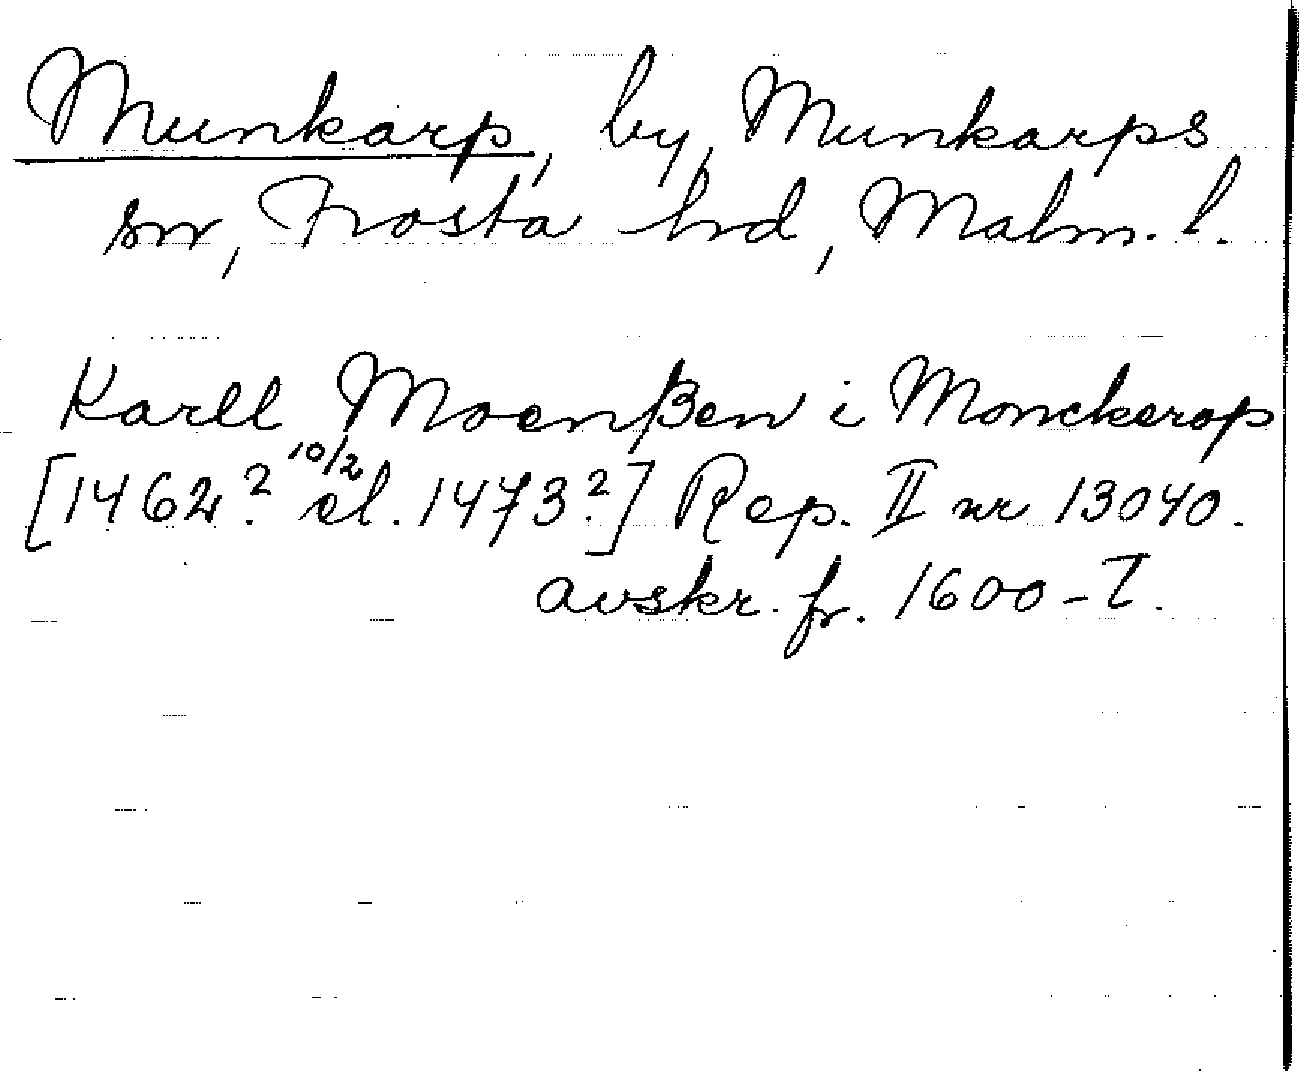 Munkarp, by, Munkarps
sn, Frosta hrd, Malm. l.
Karll Moenßen i Monckerop
[1462? 10/2 el. 1473?] Rep. II nr 13040.
avskr. fr. 1600-T.